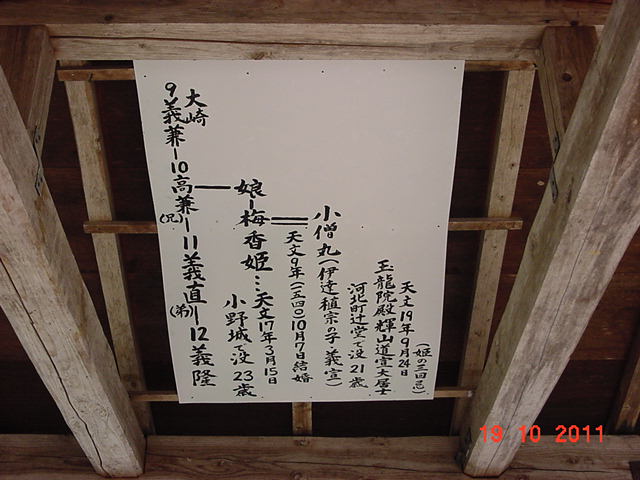 大崎
9義兼－10高兼－11義直－12義隆
(兄)
(弟)
娘－梅香姫…天文17年3月15日
小野城で没 23歳
天文9年(一五四〇)10月7日結婚
小僧丸(伊達稙宗の子・義宣)
河北町辻堂で没 21歳
玉龍院殿輝山道宣大居士
天文19年9月24日
(姫の三回忌)
19 10 2011